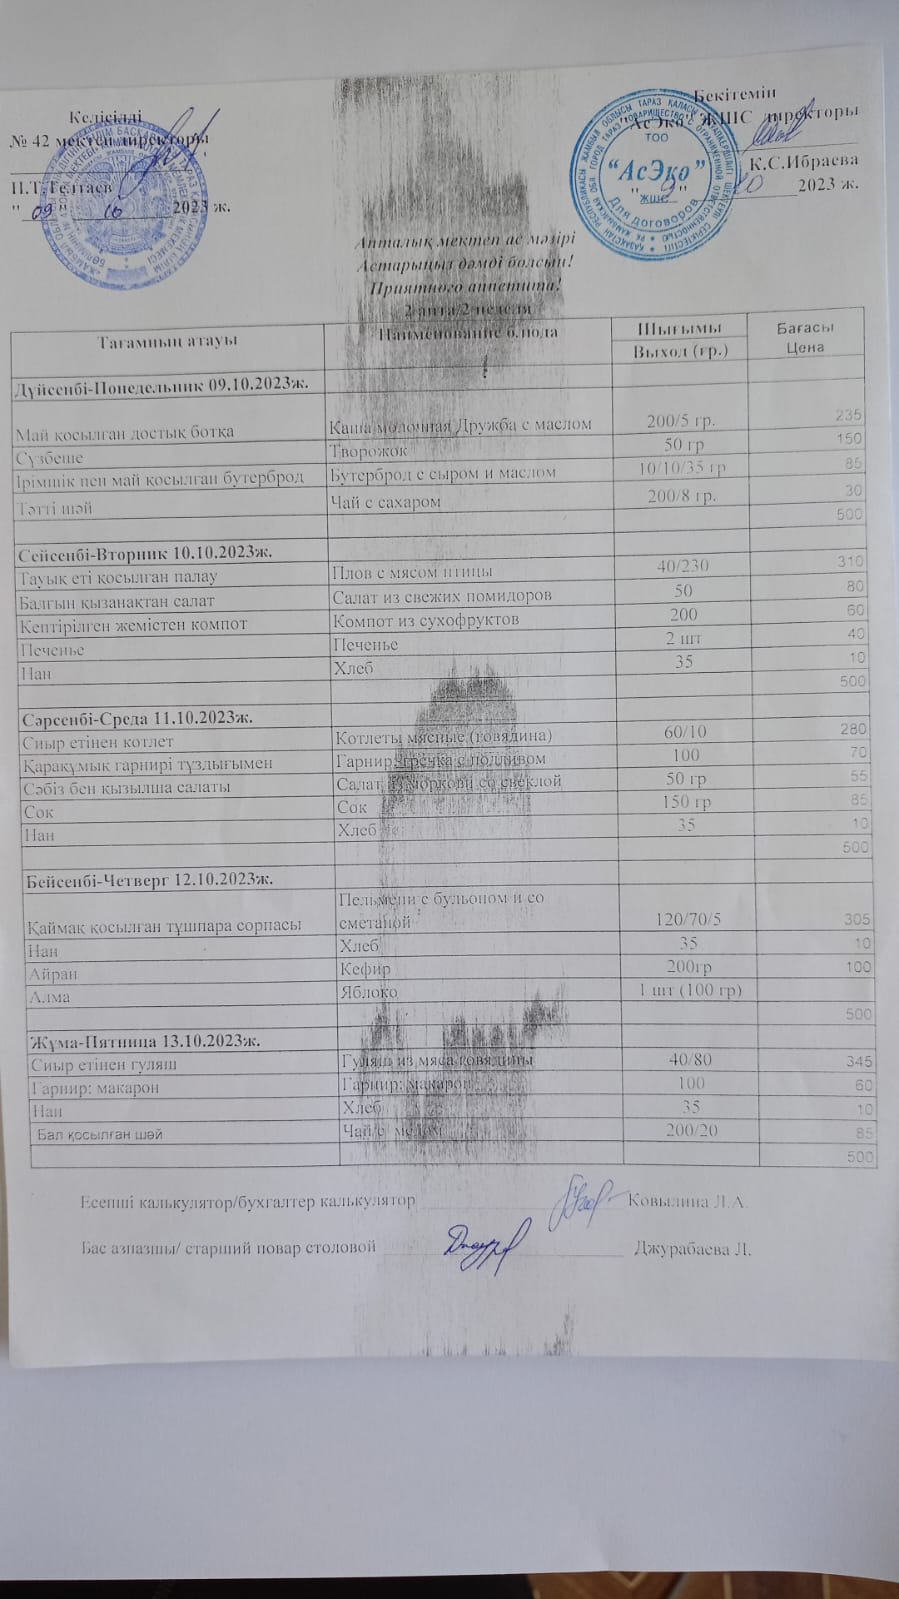 Келісілді
№ 42 мектеп директоры
П.Т.Телтаев
"09" 10 2023 ж.
Бекітемін
"АсЭко" ЖШС директоры
К.С.Ибраева
"9" 10 2023 ж.
ТОО
"АсЭко"
ЖШС
Для договоров
Апталық мектеп ас мәзірі
Астарыңыз дәмді болсын!
Приятного аппетита!
2 апта/2 неделя
Тағамның атауы | Наименование блюда | Шығымы | Бағасы
Выход (гр.) | Цена
Дүйсенбі-Понедельник 09.10.2023ж.
Май қосылған достық ботқа | Каша молочная Дружба с маслом | 200/5 гр. | 235
Сүзбеше | Творожок | 50 гр | 150
Ірімшік пен май қосылған бутерброд | Бутерброд с сыром и маслом | 10/10/35 гр | 85
Тәтті шәй | Чай с сахаром | 200/8 гр. | 30
500
Сейсенбі-Вторник 10.10.2023ж.
Тауық еті қосылған палау | Плов с мясом птицы | 40/230 | 310
Балғын қызанақтан салат | Салат из свежих помидоров | 50 | 80
Кептірілген жемістен компот | Компот из сухофруктов | 200 | 60
Печенье | Печенье | 2 шт | 40
Нан | Хлеб | 35 | 10
500
Сәрсенбі-Среда 11.10.2023ж.
Сиыр етінен котлет | Котлеты мясные (говядина) | 60/10 | 280
Қарақұмық гарнирі тұздығымен | Гарнир: гречка с подливом | 100 | 70
Сәбіз бен қызылша салаты | Салат из моркови со свеклой | 50 гр | 55
Сок | Сок | 150 гр | 85
Нан | Хлеб | 35 | 10
500
Бейсенбі-Четверг 12.10.2023ж.
Пельмени с бульоном и со
Қаймақ қосылған тұшпара сорпасы | сметаной | 120/70/5 | 305
Нан | Хлеб | 35 | 10
Айран | Кефир | 200гр | 100
Алма | Яблоко | 1 шт (100 гр)
500
Жұма-Пятница 13.10.2023ж.
Сиыр етінен гуляш | Гуляш из мяса говядины | 40/80 | 345
Гарнир: макарон | Гарнир: макарон | 100 | 60
Нан | Хлеб | 35 | 10
Бал қосылған шәй | Чай с медом | 200/20 | 85
500
Есепші калькулятор/бухгалтер калькулятор Ковылина Л.А.
Бас азпазшы/ старший повар столовой Джурабаева Л.